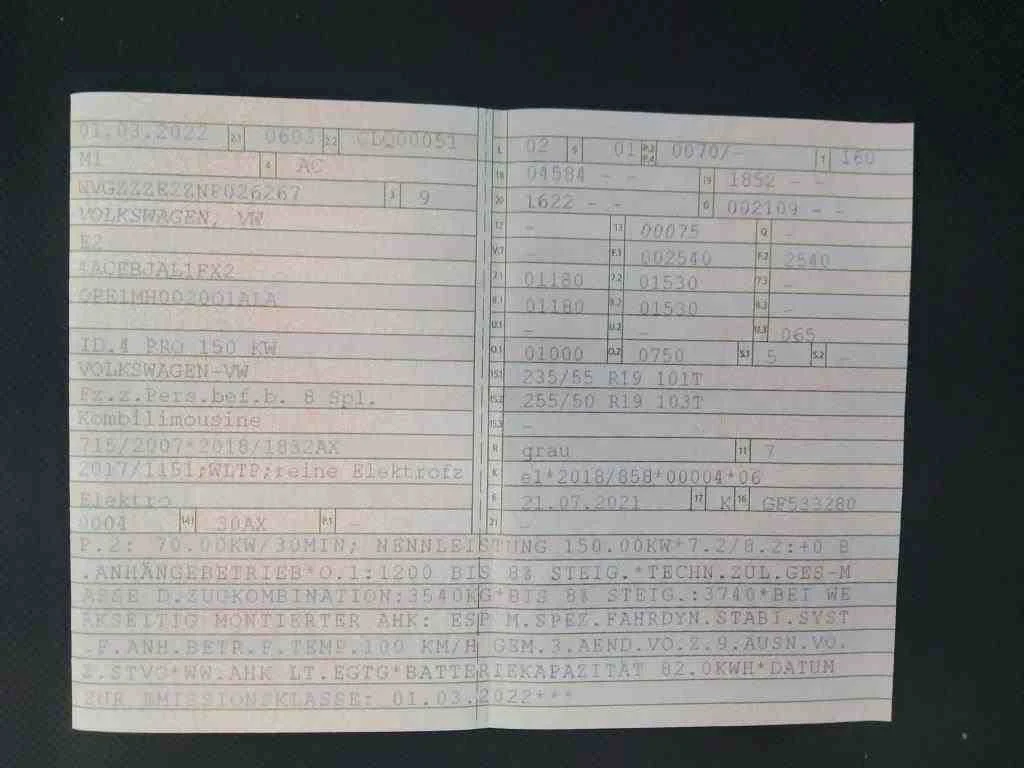 01.03.2022 2.1 0603 2.2 CLQ00051
M1 4 AC
WVGZZZE2ZNP026267 3 9
VOLKSWAGEN, VW
E2
OPE1MH002001ALA
ID.4 PRO 150 KW
VOLKSWAGEN-VW
Fz.z.Pers.bef.b. 8 Spl.
Kombilimousine
715/2007*2018/1832AX
2017/1151;WLTP;reine Elektrofz
Elektro
0004 14.1 30AX P.1 -
L 02 9 01 P.2 P.4 0070/- T 160
18 04584 - - 19 1852 - -
20 1622 - - G 002109 - -
12 - 13 00075 Q -
V.7 - F.1 002540 F.2 2540
7.1 01180 7.2 01530 7.3 -
8.1 01180 8.2 01530 8.3 -
U.1 - U.2 - U.3 065
O.1 01000 O.2 0750 S.1 5 S.2 -
15.1 235/55 R19 101T
15.2 255/50 R19 103T
15.3 -
R grau 11 7
K e1*2018/858*00004*06
6 21.07.2021 17 K 16 GF533280
21 -
P.2: 70.00KW/30MIN; NENNLEISTUNG 150.00KW*7.2/8.2:+0 B
.ANHÄNGEBETRIEB*O.1:1200 BIS 8% STEIG.*TECHN.ZUL.GES-M
ASSE D.ZUGKOMBINATION:3540KG*BIS 8% STEIG.:3740*BEI WE
RKSEITIG MONTIERTER AHK: ESP M.SPEZ.FAHRDYN.STABI.SYST
.F.ANH.BETR.F.TEMP.100 KM/H GEM.3.AEND.VO.Z.9.AUSN.VO.
Z.STVO*WW.AHK LT.EGTG*BATTERIEKAPAZITÄT 82.0KWH*DATUM
ZUR EMISSIONSKLASSE: 01.03.2022***